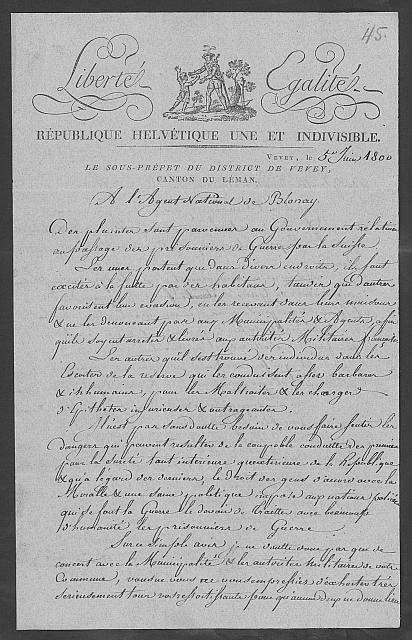 45.
Liberté Egalité
RÉPUBLIQUE HELVÉTIQUE UNE ET INDIVISIBLE.
VEVEY, le 5e Juin 1800
LE SOUS-PRÉFET DU DISTRICT DE VEVEY,
CANTON DU LÉMAN.
A l'Agent National de Blonay
Des plaintes sont parvenues au Gouvernement relatives
au passage des prisonniers de Guerre par la Suisse
Les unes portent que dans divers endroits, ils sont
excités à la fuite par des habitans, tandis que d'autres
favorisent leur evasion, en les recevant dans leurs maisons
& ne les denoncant pas aux Municipalités & Agents, afin
qu'ils soyent arretés & livrés aux autorités Militaires francaises
Les autres qu'il s'est trouvé des individus dans les
Escortes de la reserve qui les conduisent assés barbares
& inhumains, pour les Maltraiter & les charger
d'Epithetes injurieuses & outrageantes.
Il n'est pas sans doute besoin de vous faire sentir les
dangers qui peuvent resulter de la coupable conduite des premiers
pour la sureté tant interieure qu'exterieure de la Republique
& qu'a l'égard des derniers, le Droit des gens d'accord avec la
Moralle & une saine politique impose aux nations policées
qui se font la Guerre le devoir de traitter avec beaucoup
d'humanité les prisonniers de Guerre
Sur ce simple avis je ne doute donc pas que de
concert avec la Municipalité & les autorités Militaires de votre
Commune, vous ne vous empressiés d'exhorter très
serieusement tous vos ressortissants pour qu'aucun d'eux ne donne lieu